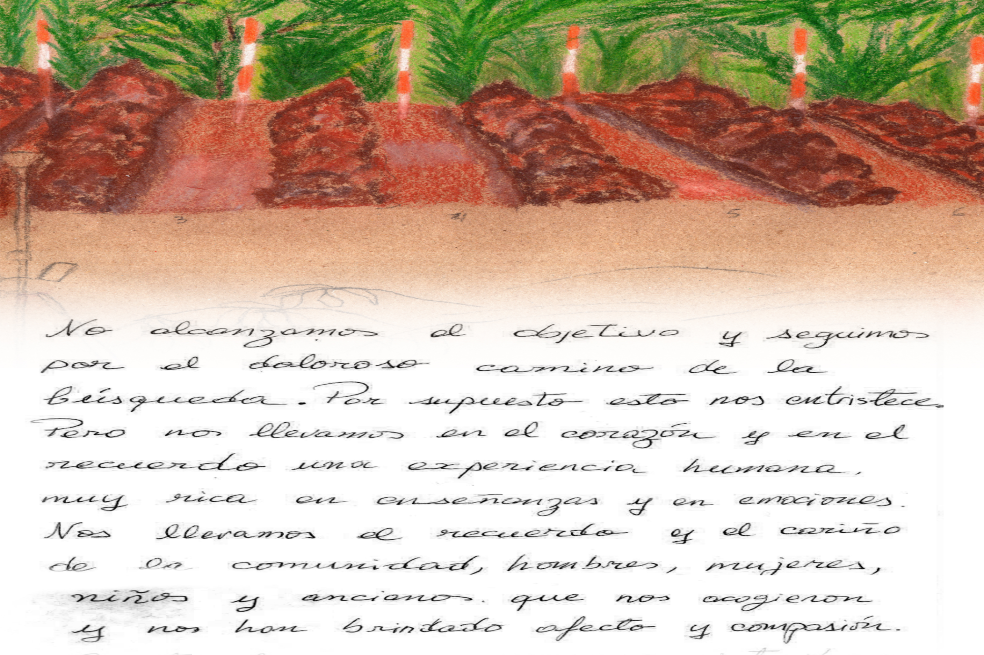 3 4 5 6
No alcanzamos el objetivo y seguimos
por el doloroso camino de la
búsqueda. Por supuesto esto nos entristece.
Pero nos llevamos en el corazón y en el
recuerdo una experiencia humana,
muy rica en enseñanzas y en emociones.
Nos llevamos el recuerdo y el cariño
de la comunidad, hombres, mujeres,
niños y ancianos. que nos acogieron
y nos han brindado afecto y compasión.